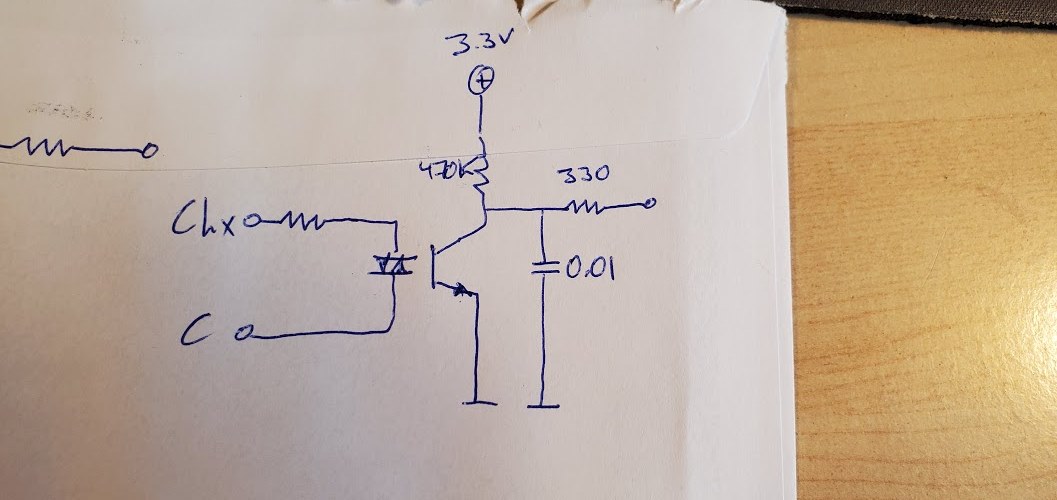 3.3V
470K
330
Chx
0.01
C